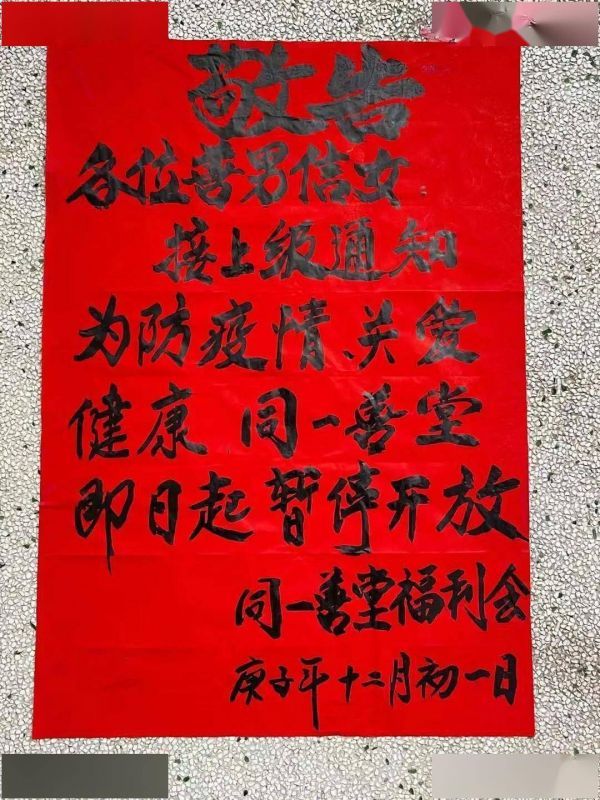 敬告
各位善男信女
接上级通知
为防疫情、关爱
健康 同一善堂
即日起暂停开放
同一善堂福利会
庚子年十二月初一日